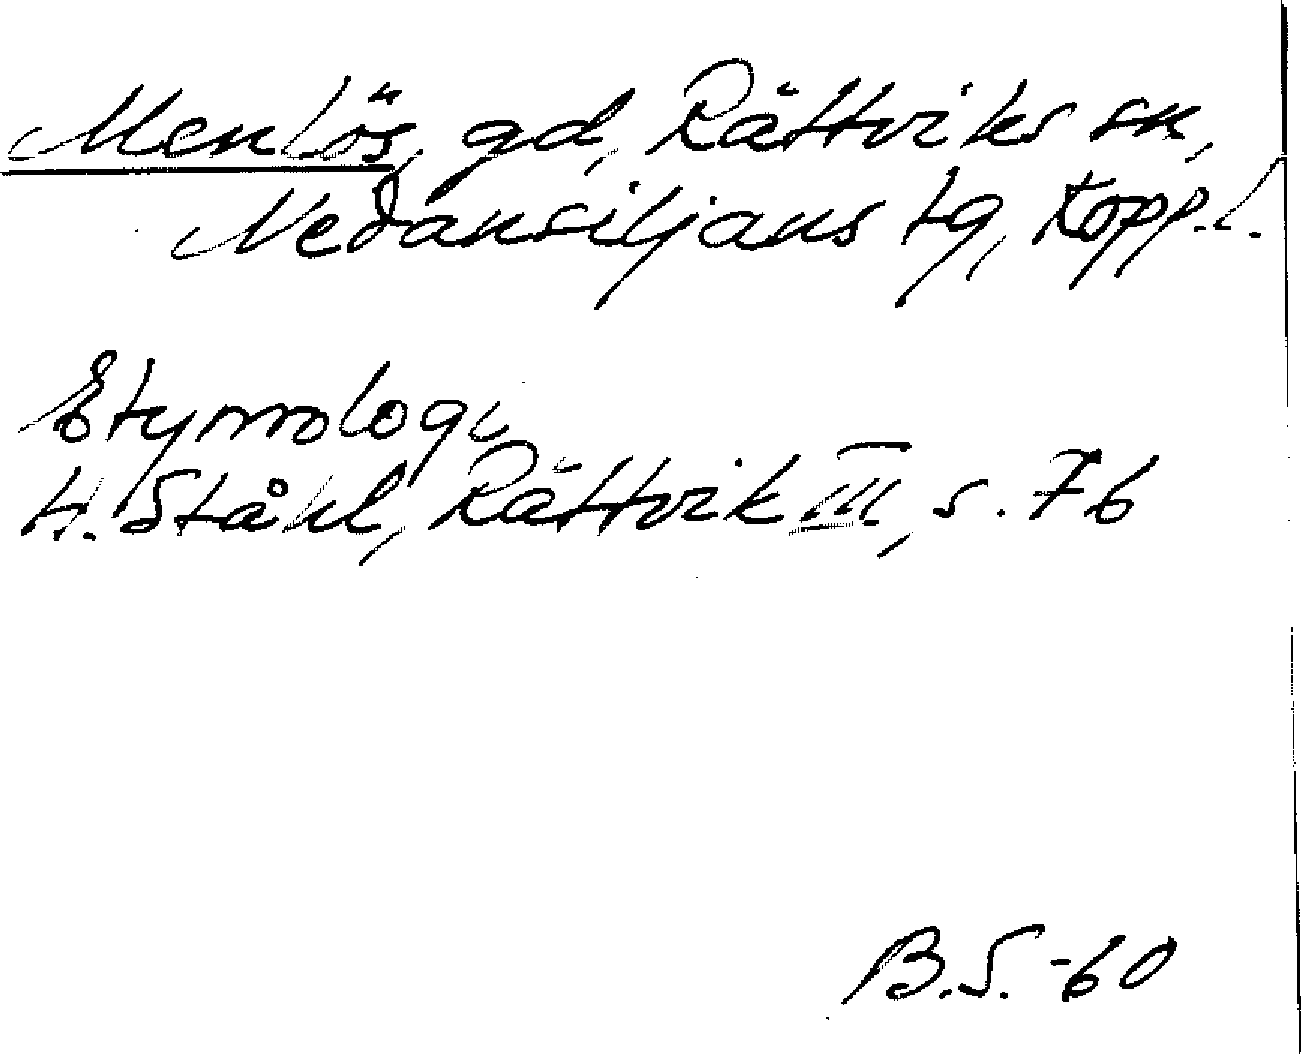 Menlös, gd, Rättviks sn,
Nedansiljans tg, Kopp.l.
Etymologi
H. Ståhl, Rättvik III, s. 76
B.S. -60